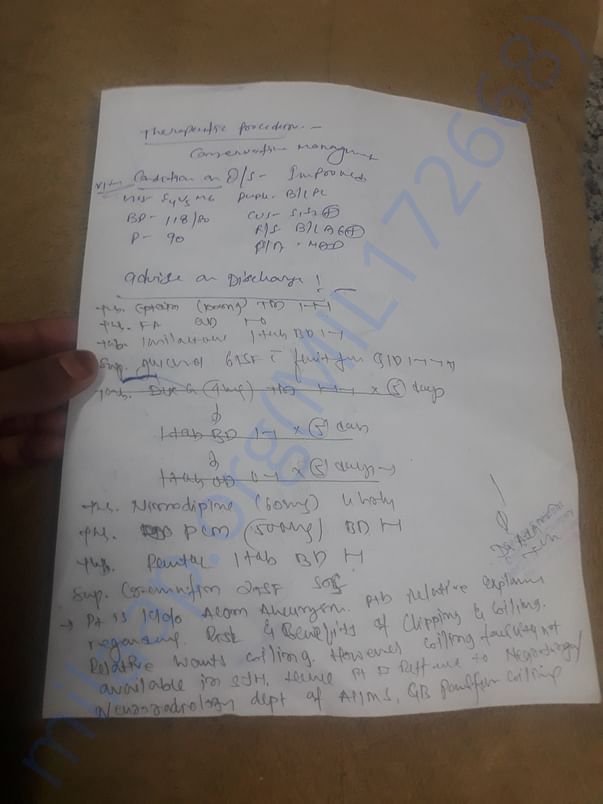 Therapeutic Procedure -
Conservative Management
Condition on D/S - Improved
E4V5M6 Pupil - B/L
BP - 118/80 CVS - S1S2 ⊕
P - 90 R/S B/L AE ⊕
P/A -
Advise on Discharge! -
Tab. Eptoin (100mg) TID 1-1-1
Tab. FA OD
Tab. 1 tab BD 1-1
Syp. 6TSF c fruit juice QID 1-1-1-1
Tab. Dexa (4mg) TID 1-1-1 × (5) days
1 tab BD 1-1 × (5) days
1 tab OD × (5) days
Tab. Nimodipine (60mg) 4 hrly
Tab. PCM (500mg) BD 1-1
Tab. Pantac 1 tab BD 1-1
Syp. Cremaffin 2TSF SOS
→ Pt is k/c/o Acom Aneurysm. Relative explain
regarding Risk & Benefits of Clipping & Coiling.
Relative wants coiling. However coiling facility not
available in hence pt is Reffered to Neurology/
Neuroradiology dept of AIIMS, GB Pant for coiling
milaap.org(MIL172668)